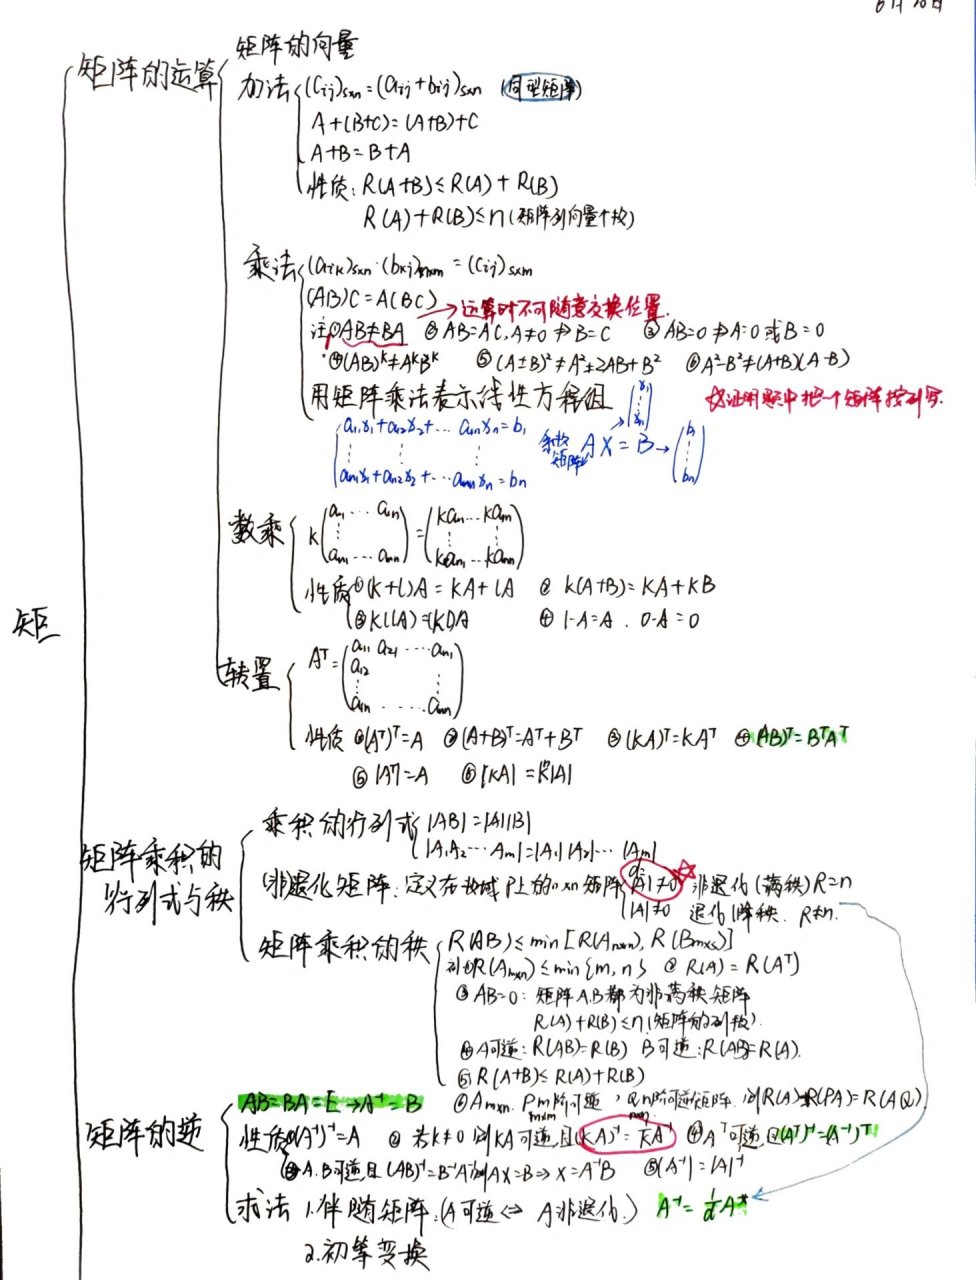 6月20日
矩阵的运算
矩阵的向量
加法 (Cij)sxn = (aij + bij)sxn (同型矩阵)
A+(B+C)=(A+B)+C
A+B=B+A
性质: R(A+B)≤R(A)+R(B)
R(A)+R(B)≤n(矩阵列向量个数)
乘法 (aik)sxn·(bkj)nxm = (Cij)sxm
(AB)C=A(BC) →运算时不可随意交换位置.
注①AB≠BA ②AB=AC,A≠0 ⇏ B=C ③AB=0 ⇏ A=0 或 B=0
④(AB)ᵏ≠AᵏBᵏ ⑤(A±B)²≠A²±2AB+B² ⑥A²-B²≠(A+B)(A-B)
用矩阵乘法表示线性方程组
☆证明题中把一个矩阵按列写.
a11x1+a12x2+… a1nxn=b1
am1x1+am2x2+…amnxn=bn
系数矩阵 AX=B
x1 ⋮ xn
b1 ⋮ bn
数乘 k(a11 … a1n ⋮ am1 … amn) = (ka11 … ka1n ⋮ kam1 … kamn)
性质①(k+l)A=kA+lA ②k(A+B)=kA+kB
③k(lA)=(kl)A ④1·A=A. 0·A=0
矩
转置 Aᵀ=(a11 a21 … am1 a12 ⋮ a1n … amn)
性质 ①(Aᵀ)ᵀ=A ②(A+B)ᵀ=Aᵀ+Bᵀ ③(kA)ᵀ=kAᵀ ④(AB)ᵀ=BᵀAᵀ
⑤|Aᵀ|=A ⑥|kA|=kⁿ|A|
矩阵乘积的行列式与秩
乘积的行列式 |AB|=|A||B|
|A1A2…Am|=|A1||A2|…|Am|
(非)退化矩阵:定义在数域P上的nxn矩阵 |A|≠0 非退化(满秩)R=n
|A|≠0 退化|降秩. R≠n.
矩阵乘积的秩 R(AB)≤min[R(Anxm),R(Bmxs)]
①R(Amxn)≤min{m,n} ②R(A)=R(Aᵀ)
③AB=0: 矩阵A,B都为非满秩矩阵
R(A)+R(B)≤n(矩阵的列数).
④A可逆:R(AB)=R(B) B可逆:R(AB)=R(A).
⑤R(A+B)≤R(A)+R(B)
⑥Amxn. Pm阶可逆, Qn阶可逆矩阵. 则R(A)=R(PA)=R(AQ)
mxm nxn
矩阵的逆
AB=BA=E→A⁻¹=B
性质①(A⁻¹)⁻¹=A ②若k≠0 则kA可逆,且(kA)⁻¹=1/k A⁻¹ ④Aᵀ可逆,且(Aᵀ)⁻¹=(A⁻¹)ᵀ
③A.B可逆,且(AB)⁻¹=B⁻¹A⁻¹则AX=B⇒X=A⁻¹B ⑤|A⁻¹|=|A|⁻¹
求法 1.伴随矩阵.(A可逆⇔A非退化.) A⁻¹=1/d A*
2.初等变换